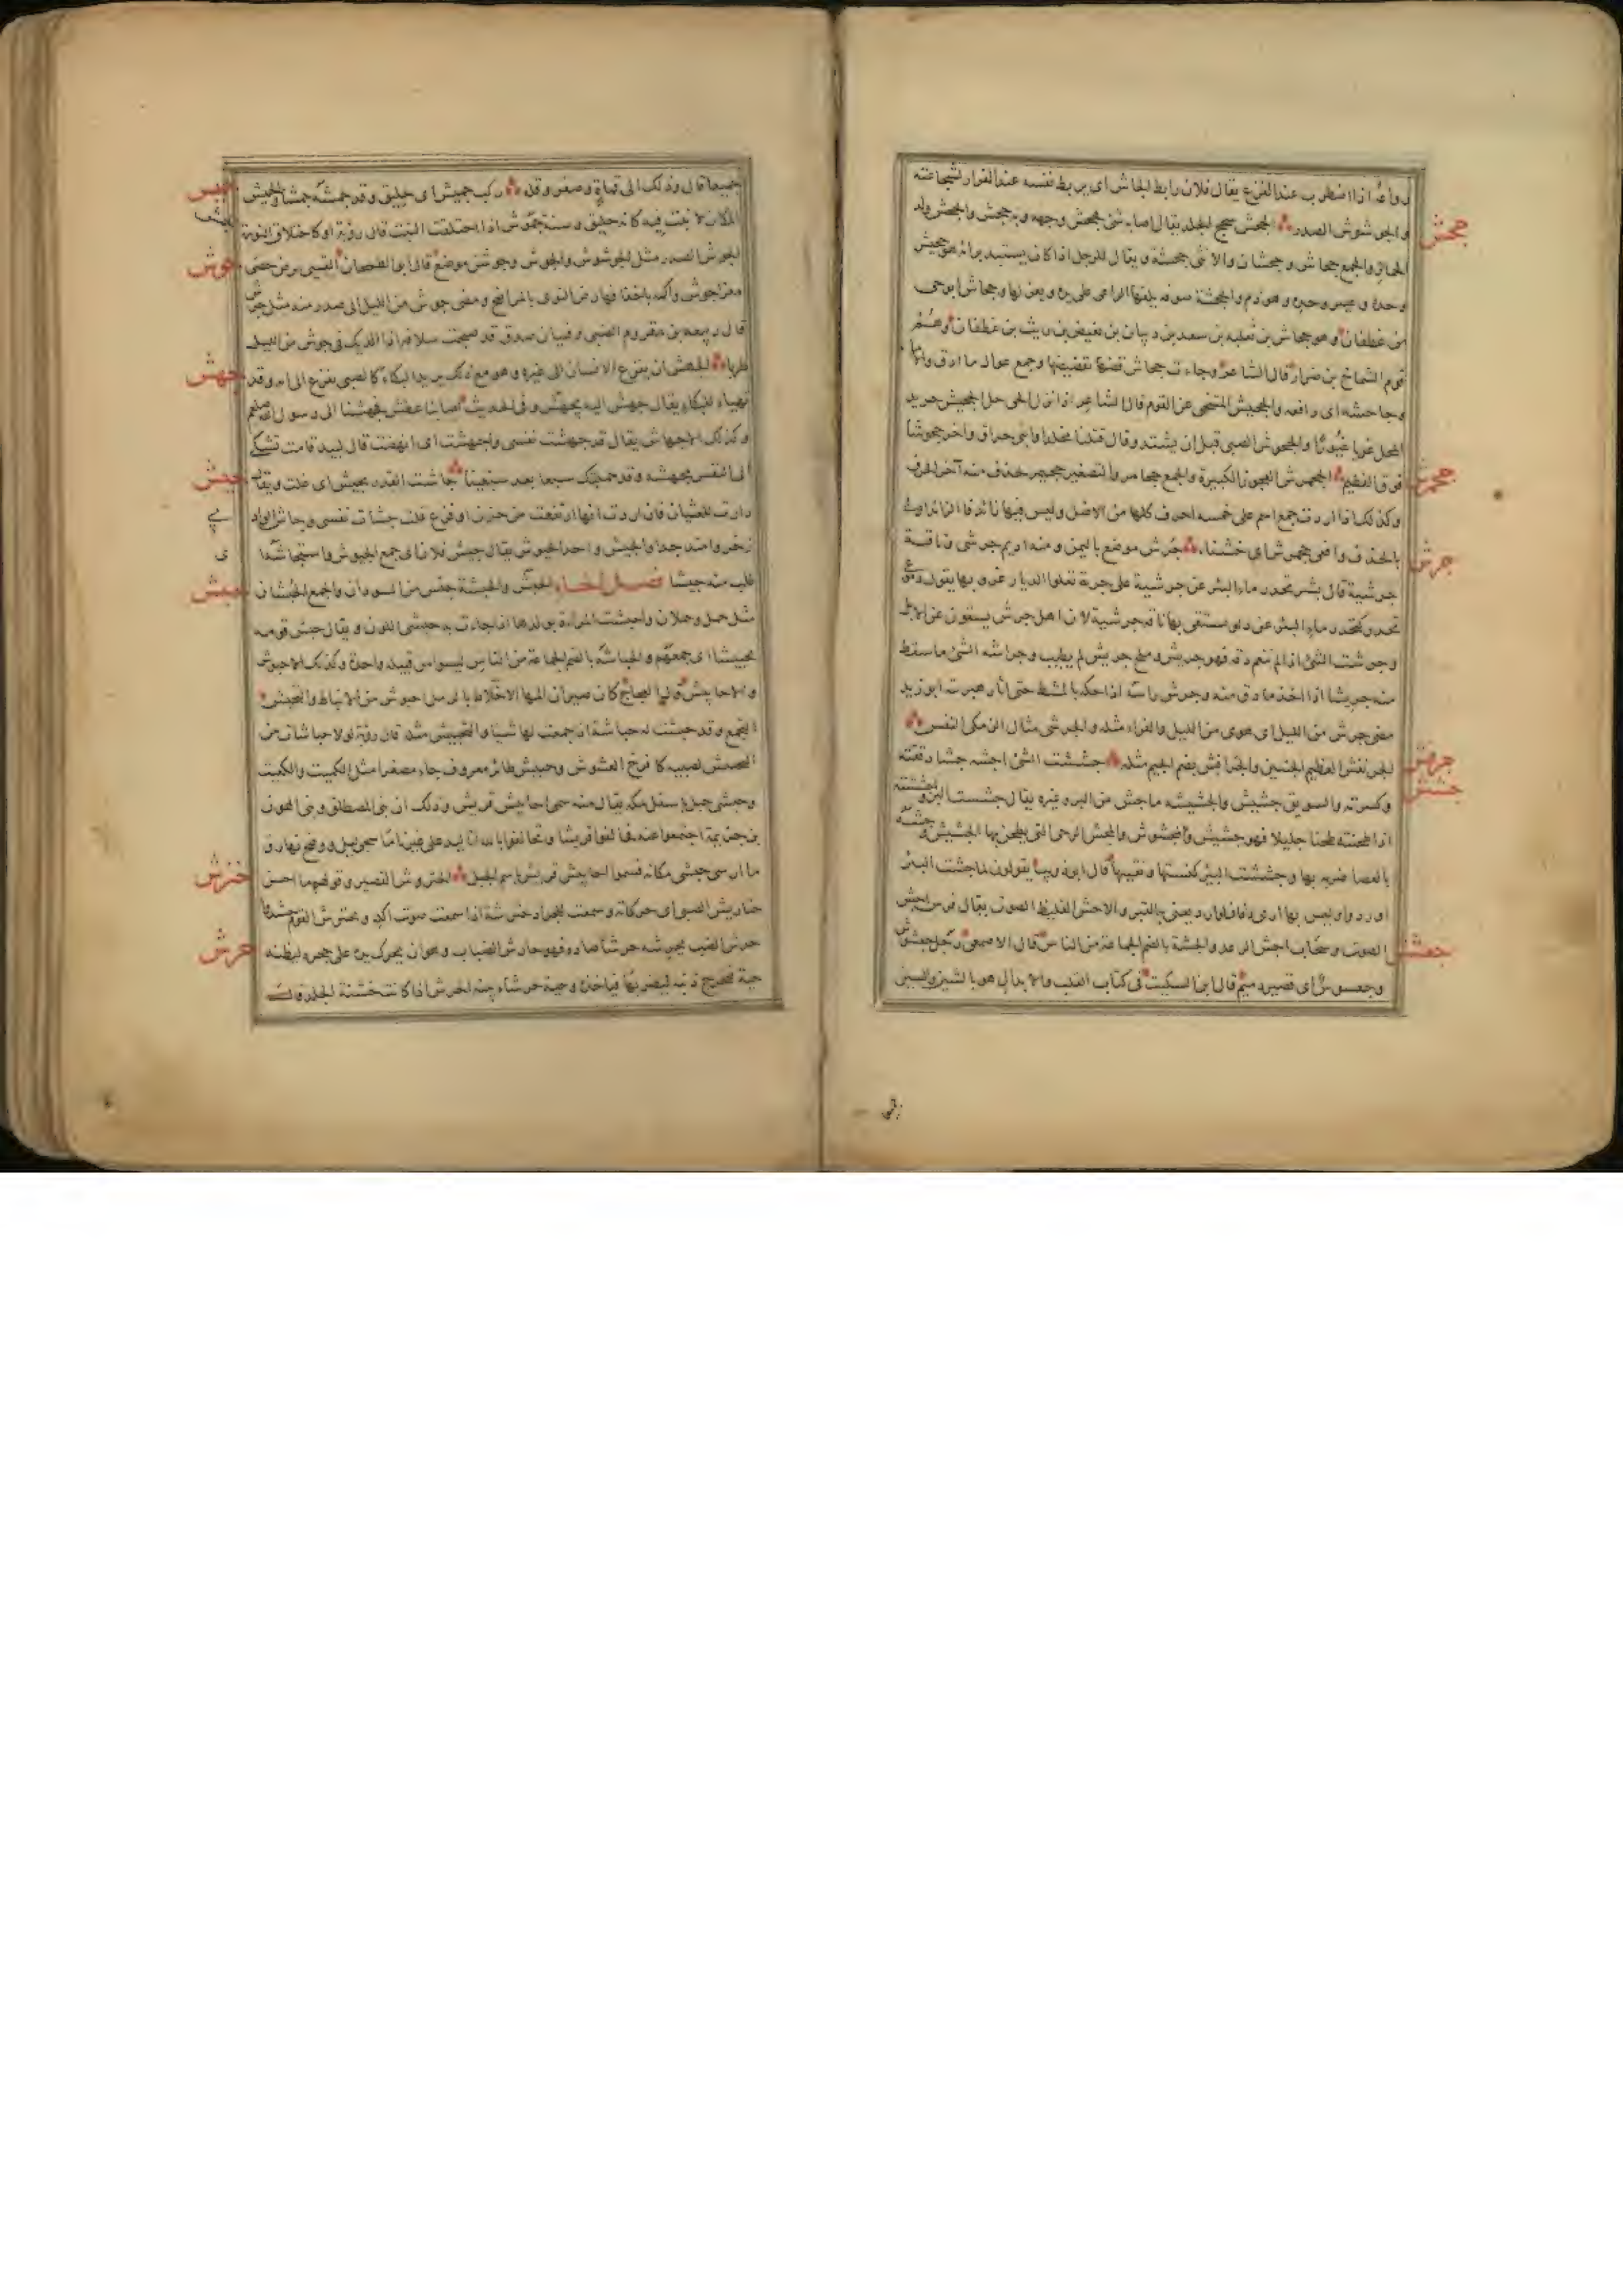 رواغ اذا اضطرب عند الفزع يقال فلان رابط الجاش اى يربط نفسه عند الفرار لشجاعته
جحش
والجوشوش الصدر الجحش سحج الجلد يقال اصابه شئ فجحش وجهه وبه جحش والجحش ولد
الحمار والجمع جحاش وجحشان والانثى جحشة ويقال للرجل اذا كان يستبد برائه هو جحيش
وحده وعيير وحده وهو ذم والجحشة صوفة يلفها الراعى على يده ويغزلها وجحاش ابو حى
من غطفان وهو جحاش بن ثعلبة بن سعد بن ذبيان بن بغيض بن ريث بن غطفان وهم
قوم الشماخ بن ضرار قال الشاعر وجاءت جحاش قضها بقضيضها وجمع عوال ما ادق والاما
وجاحشه اى دافعه والجحيش المتنحى عن القوم قال الشاعر اذا نزل الحى حل الجحيش حريد
المحل غويا غيورا والجحوش الصبى قبل ان يشتد وقال قتلنا مخلدا وابنى حراق واخر جحوشا
جحمرش
فوق الفطيم الجحمرش العجوز الكبيرة والجمع جحامر والتصغير جحيمر حذف منه آخر الحرف
وكذلك اذا اردت جمع اسم على خمسة احرف كلها من الاصل وليس فيها زائد فاما الزائد اولى
جرش
بالحذف وافعى جحمرش اى خشناء جرش موضع باليمن ومنه اديم جرشى وناقة
جرشية قال بشر تحدر ماء البئر عن جرشية على جربة تعلوا الديار غروبها يقول دموعى
تحدر كتحدر ماء البئر عن دلو تستقى بها ناقة جرشية لان اهل جرش يسقون على الابل
وجرشت الشئ اذا لم تنعم دقه فهو جريش وملح جريش لم يطيب وجراشة الشئ ما سقط
منه جريشا اذا اخذ ما دق منه وجرش راسه اذا حكه بالمشط حتى اثار هبريته ابو زيد
مضى جرش من الليل اى هوى من الليل والفراء مثله والجرشى مثال الزمكى النفس
جرفش
الجرنفش العظيم الجنبين والجرافش بضم الجيم مثله جششت الشئ اجشه جشا دققته
جشش
وكسرته والسويق جشيش والجشيشة ما جش من البر وغيره يقال جششت البر واجششته
اذا طحنته طحنا جليلا فهو جشيش ومجشوش والمجش الرحى التى يطحن بها الجشيش وجشه
بالعصا ضربه بها وجششت البئر كنستها ونقيتها قال ابو ذويب يقولون لما جشت البئر
اوردوا وليس بها ادنى ذفاف لوارد يعنى بالقبر والاجش الغليظ الصوت يقال فرس اجش
جعشش
الصوت وسحاب اجش الرعد والجشة بالضم الجماعة من الناس قال الاصمعى رجل جعشوش
وجعسوس اى قصير دميم قال ابن السكيت فى كتاب القلب والابدال هو بالشين والسين
جمش
جميعا قال وذلك الى قماة وصغر وقلة ركب جميش اى حليق وقد جمشه جمشا والجميش
المكان لا نبت فيه كانه حليق وسنة جموش اذا احتلقت النبت قال رؤبة او كاحتلاق النورة
جوش
الجوش الصدر مثل الجوشوش والجوش وجوش موضع قال ابو الطمحان القينى يرض حصى
معزا جوش واكمه باخفافها رض النوى بالمراضخ ومضى جوش من الليل اى صدر منه مثل جرش
قال ربيعة بن مقروم الضبى وفتيان صدق قد صبحت سلافة اذا الديك فى جوش من الليل
جهش
طربا الجهش ان يفزع الانسان الى غيره وهو مع ذلك يريد البكاء كالصبى يفزع الى امه وقد
تهياء للبكاء يقال جهش اليه يجهش وفى الحديث اصابنا عطش فجهشنا الى رسول الله صلعم
وكذلك الاجهاش يقال قد جهشت نفسى واجهشت اى انهضت قال لبيد قامت تشكى
جيش
الى النفس مجهشة وقد حملتك سبعا بعد سبعينا جاشت القدر تجيش اى غلت ويقال
دارت للغثيان فان اردت انها ارتفعت من حزن او فزع قلت جشات نفسى وجاش الواد
زخر وامتد جدا والجيش واحد الجيوش يقال جيش فلان اى جمع الجيوش واستجاشه اى
حبش
طلب منه جيشا فصل الحاء الحبش والحبشة جنس من السودان والجمع الحبشان
مثل حمل وحملان واحبشت المراة بولدها اذا جاءت به حبشى اللون ويقال حبش قومه
تحبيشا اى جمعهم والحباشة بالضم الجماعة من الناس ليسوا من قبيلة واحدة وكذلك الاحبوش
والاحابيش قال العجاج كان صيران المها الاخلاط بالرمل احبوش من الانباط والتحبش
التجمع وقد حبشت له حباشة اذا جمعت لها شيا والتحبيش مثله قال رؤبة لولا حباشات من
التحبيش لصبية كافرخ العشوش وحبيش طائر معروف جاء مصغرا مثل الكميت والكعيت
وحبشى جبل باسفل مكة يقال منه سمى احابيش قريش وذلك ان بنى المصطلق وبنى الهون
بن خزيمة اجتمعوا عنده فحالفوا قريشا وتحالفوا بالله انا ليد على غيرنا ما سجى ليل ووضح نهار و
حترش
ما ارسى حبشى مكانه فسموا احابيش قريش باسم الجبل الحتروش القصير وقولهم ما احسن
حتاريش الصبى اى حركاته وسمعت للجراد حترشة اذا سمعت صوت اكله وتحترش القوم حشدوا
حرش
حرش الضب يحرشه حرشا صاده فهو حارش الضباب وهو ان يحرك يده على جحره ليظنه
حية فيخرج ذنبه ليضربها فياخذه وحية حرشاء بينة الحرش اذا كانت خشنة الجلد قال